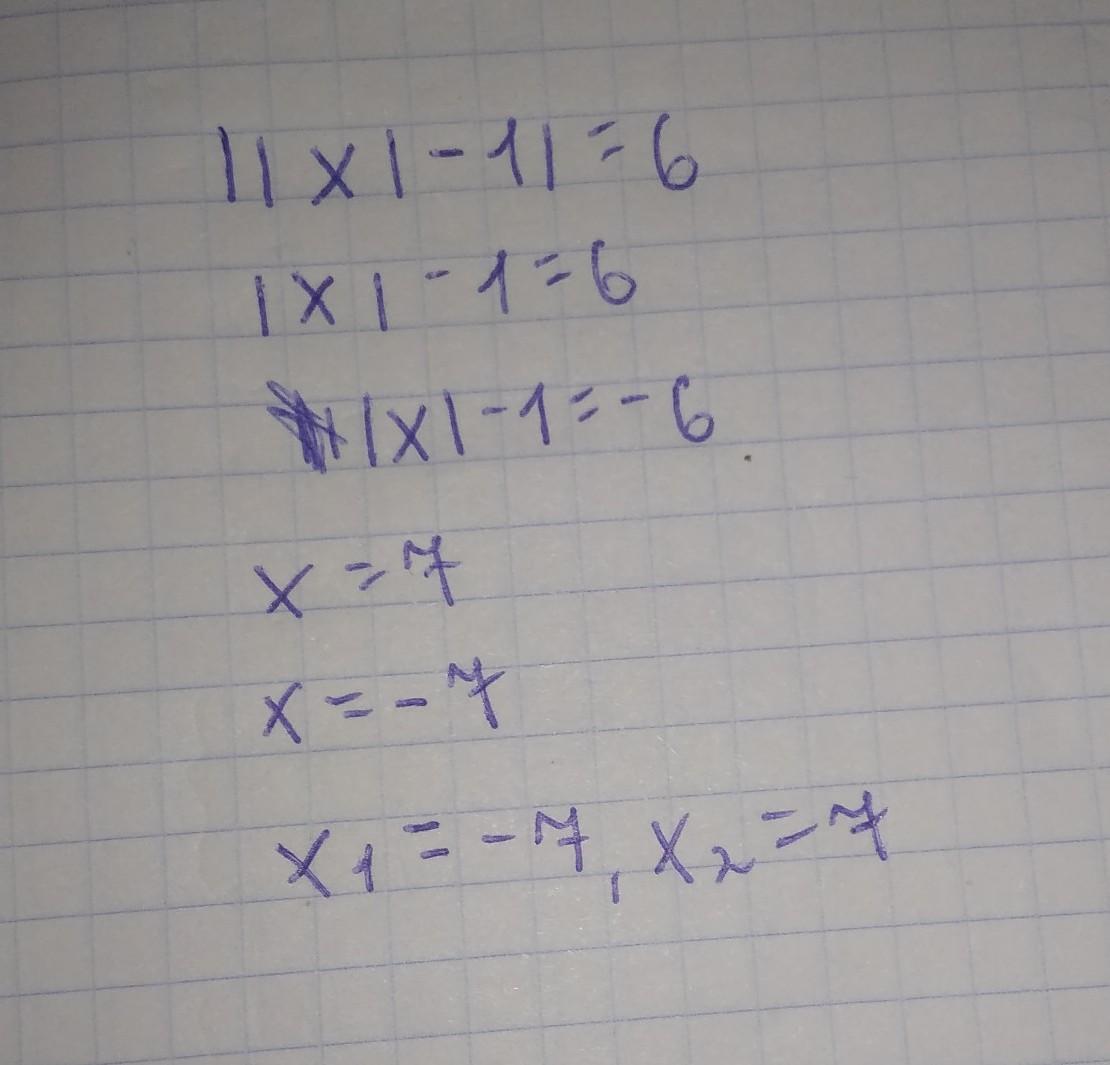 ||x|-1|=6
|x|-1=6
|x|-1=-6
x=7
x=-7
x₁=-7, x₂=7